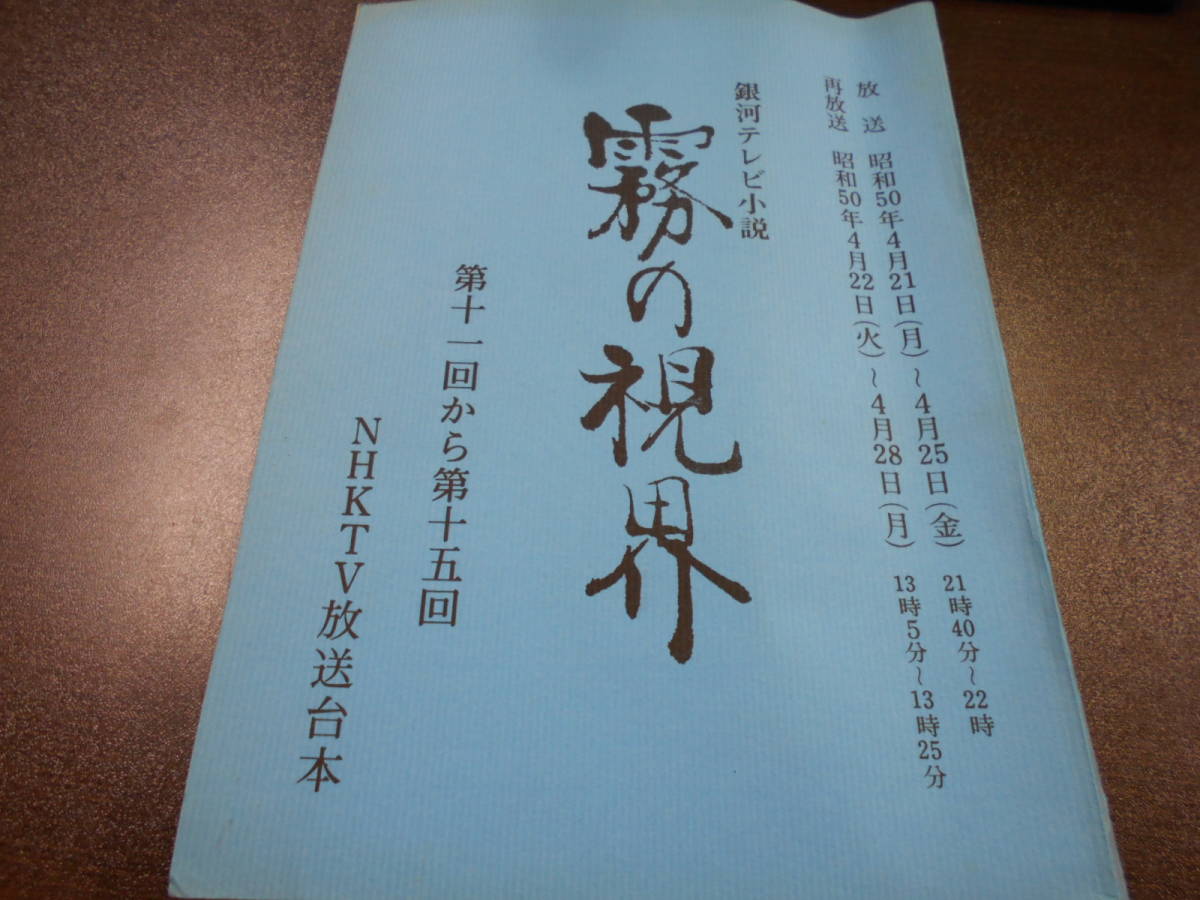 放送 昭和50年4月21日(月)~4月25日(金) 21時40分~22時
再放送 昭和50年4月22日(火)~4月28日(月) 13時5分~13時25分
銀河テレビ小説
霧の視界
第十一回から第十五回
NHKTV放送台本